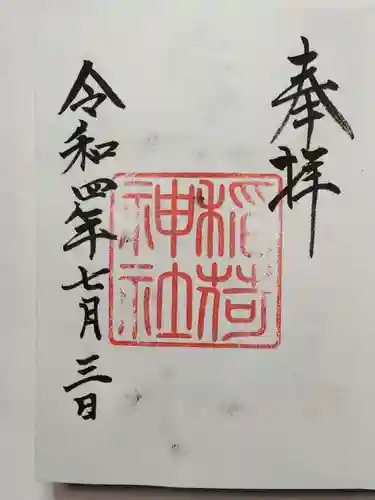 奉拝
稲荷
神社
令和四年七月三日